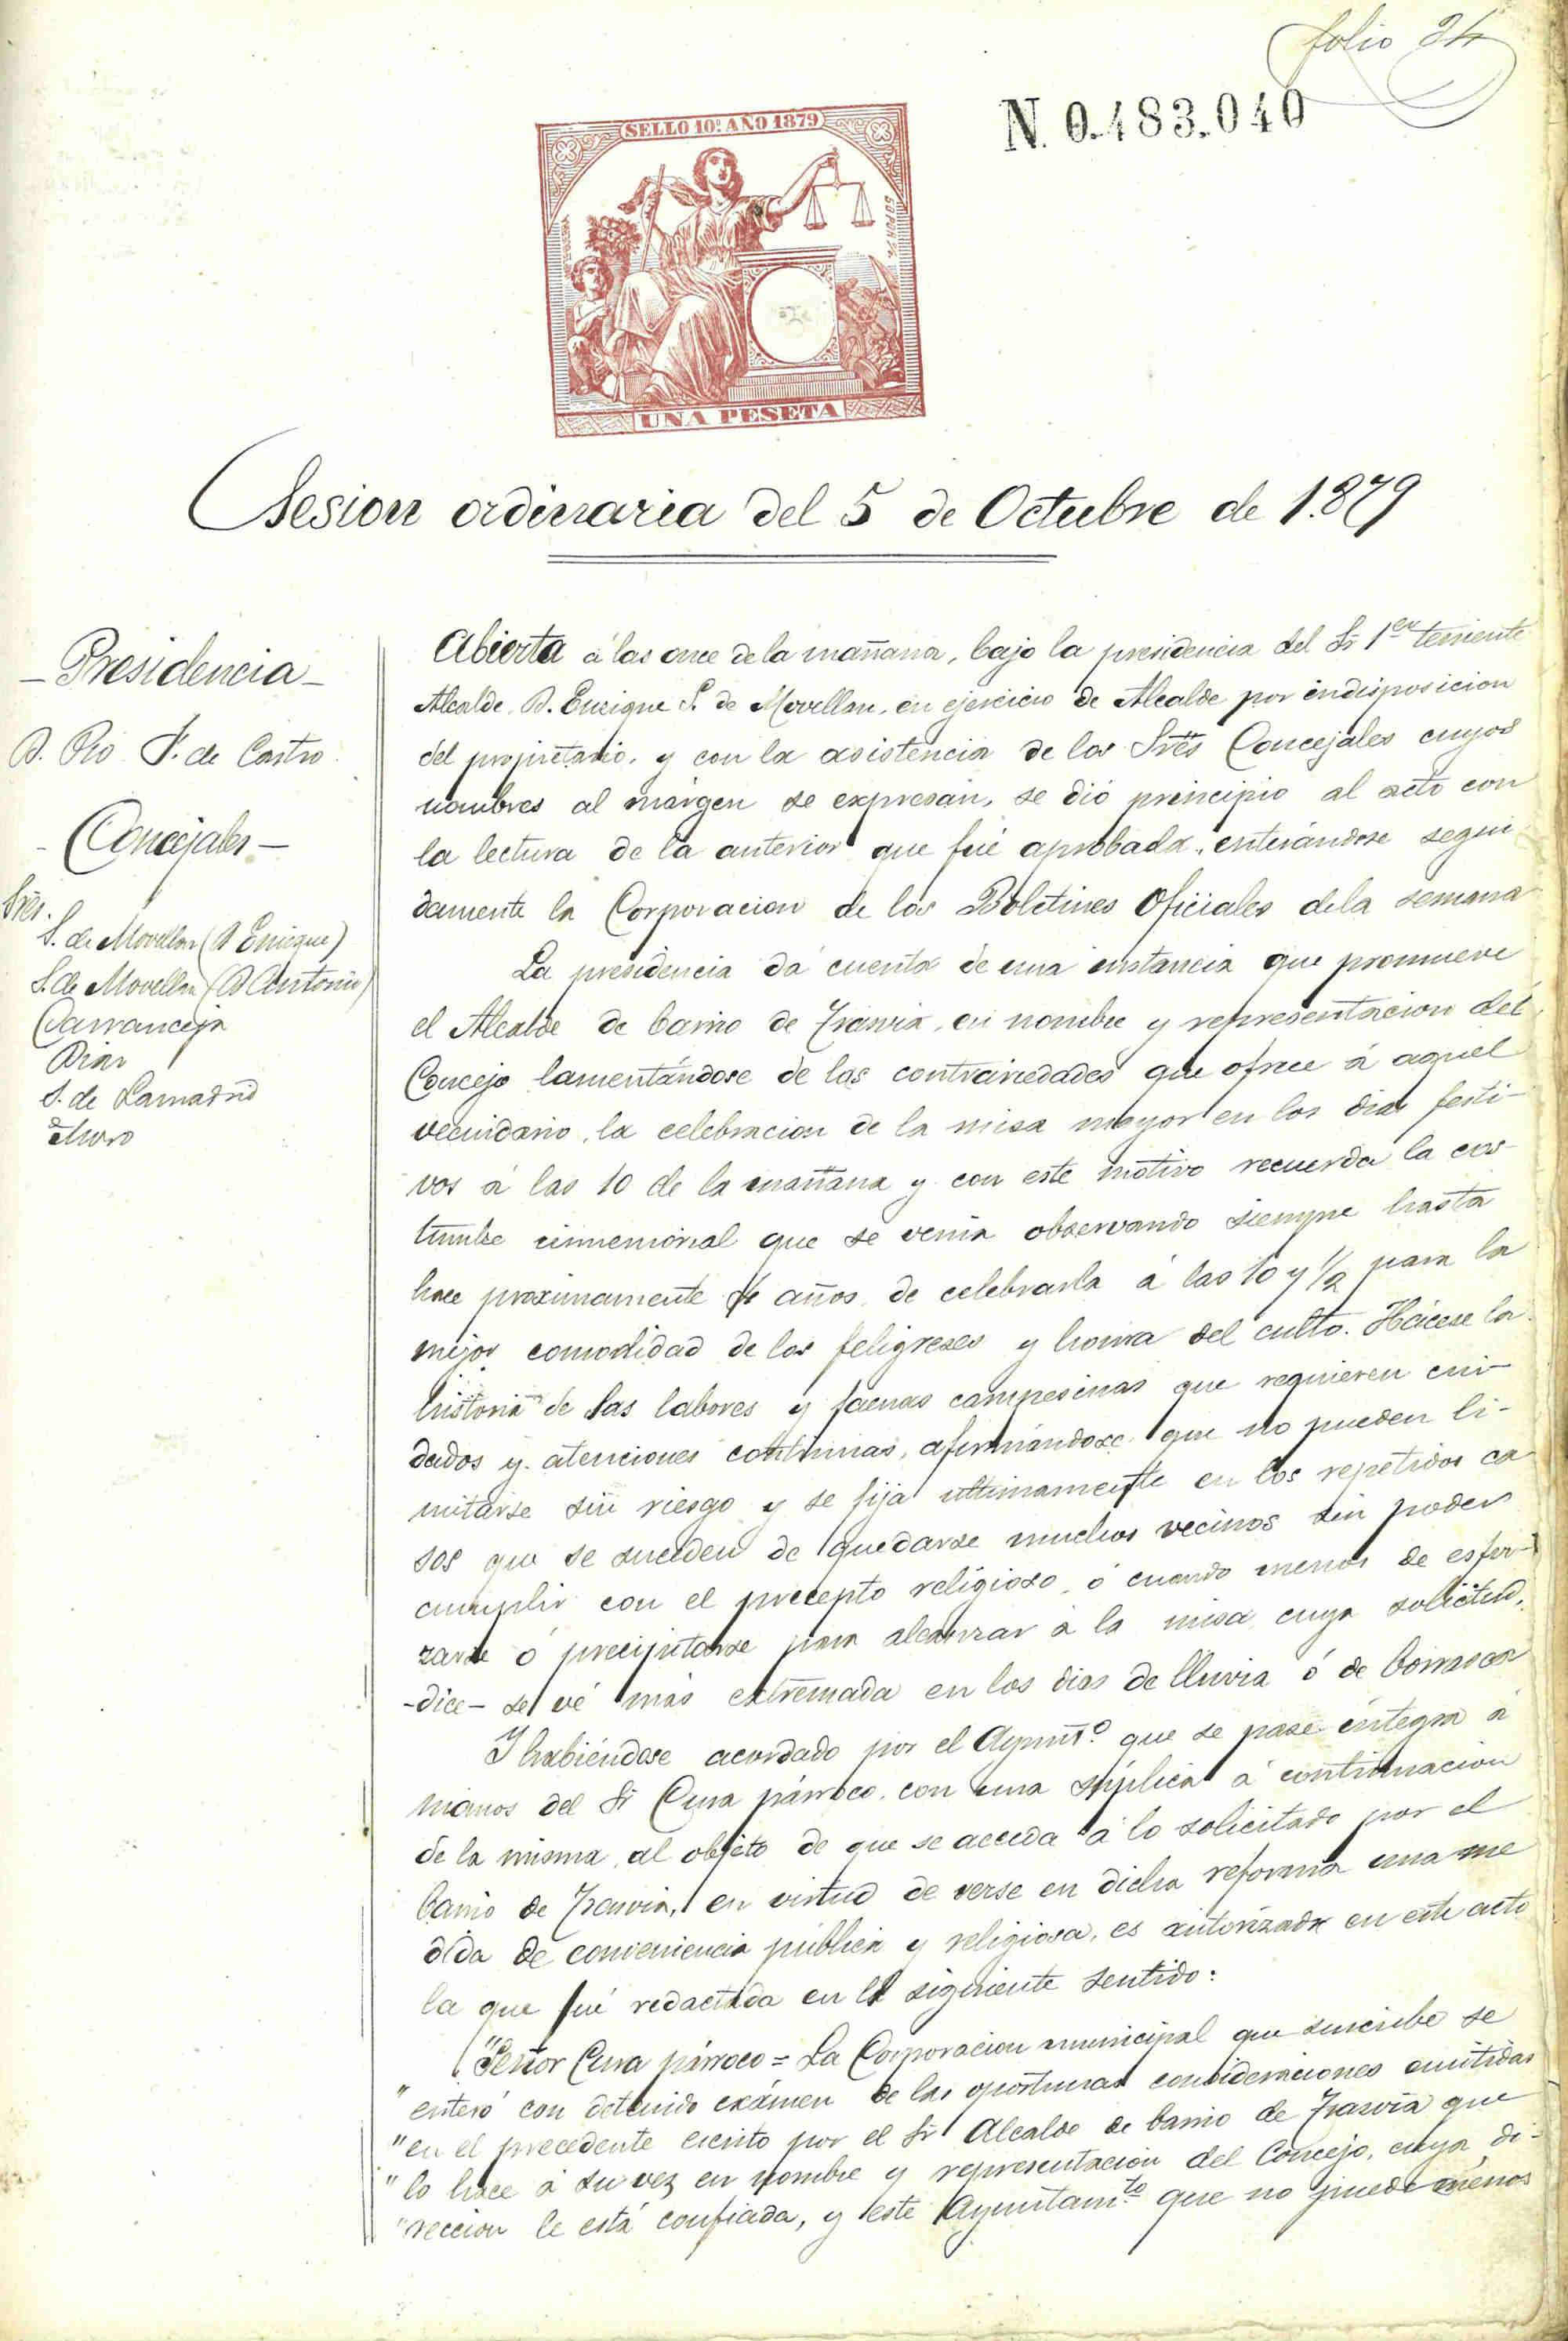 folio 24
N. 0.483.040
SELLO 10º AÑO 1879
UNA PESETA
Sesion ordinaria del 5 de Octubre de 1.879
- Presidencia -
D. Pio F. de Castro
- Concejales -
Sres.
S. de Movellan (D Enrique)
S. de Movellan (D Antonio)
Carranceja
Diaz
S. de Lamadrid
Abierta á las once de la mañana, bajo la presidencia del Sr 1er teniente
Alcalde D. Enrique S. de Movellan, en ejercicio de Alcalde por indisposicion
del propietario, y con la asistencia de los Sres Concejales cuyos
nombres al márgen se expresan, se dió principio al acto con
la lectura de la anterior que fué aprobada, enterándose segui
damente la Corporacion de los Boletines Oficiales dela semana
La presidencia dá cuenta de una instancia que promueve
el Alcalde de barrio de Trasvia, en nombre y representacion del
Concejo lamentándose de las contrariedades que ofrece á aquel
vecindario, la celebracion de la misa mayor en los dias festi-
vos á las 10 de la mañana y con este motivo recuerda la cos-
tumbre inmemorial que se venia observando siempre hasta
hace proximamente años de celebrarla á las 10 y 1/2 para la
mejor comodidad de los feligreses y honra del culto. Hácese la
historia de las labores y faenas campesinas que requieren cui-
dados y atenciones continuas, afirmándose que no pueden li-
mitarse sin riesgo y se fija ultimamente en los repetidos ca
sos que se suceden de quedarse muchos vecinos sin poder
cumplir con el precepto religioso, ó cuando menos de esfor-
zarse ó precipitarse para alcanzar á la misa, cuya solicitud,
-dice- se vé más extremada en los dias de lluvia ó de borrasca
Y habiéndose acordado por el Ayuntº que se pase íntegra á
manos del Sr Cura párroco, con una súplica á continuacion
de la misma, al objeto de que se acceda á lo solicitado por el
barrio de Trasvia, en virtud de verse en dicha reforma una me
dida de conveniencia pública y religiosa, es autorizada en este acto
la que fué redactada en el siguiente sentido:
"Señor Cura párroco = La Corporacion municipal que suscribe se
" enteró con detenido exámen de las oportunas consideraciones emitidas
" en el precedente escrito por el Sr Alcalde de barrio de Trasvia que
" lo hace á su vez en nombre y representacion del Concejo, cuya di-
" reccion le está confiada, y este Ayuntamto que no puede menos